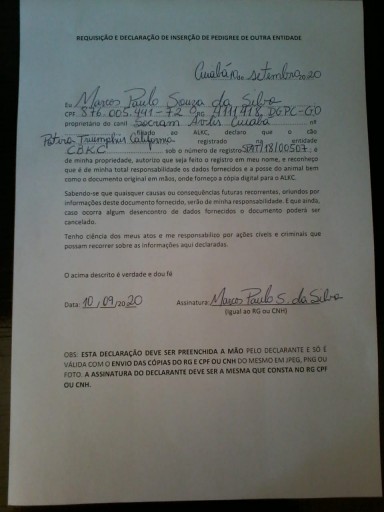 REQUISIÇÃO E DECLARAÇÃO DE INSERÇÃO DE PEDIGREE DE OUTRA ENTIDADE
Cuiabá, 10 de setembro 20 20
Eu Marcos Paulo Souza da Silva
CPF 876.005.441-72 e RG 4141418, DGPC-GO
proprietário do canil Socram Avlis Cuiabá nº
filiado ao ALKC, declaro que o cão
Petara Triumphus California registrado na entidade
CBKC sob o número de registro /18/00507, é
de minha propriedade, autorizo que seja feito o registro em meu nome, e reconheço
que é de minha total responsabilidade os dados fornecidos e a posse do animal bem
como o documento original em mãos, onde forneço a cópia digital para o ALKC.
Sabendo-se que quaisquer causas ou consequências futuras recorrentes, oriundos por
informações deste documento fornecido, verão de minha responsabilidade. E que ainda,
caso ocorra algum desencontro de dados fornecidos o documento poderá ser
cancelado.
Tenho ciência dos meus atos e me responsabilizo por ações cíveis e criminais que
possam recorrer sobre as informações aqui declaradas.
O acima descrito é verdade e dou fé
Data: 10 / 09 /20 20 Assinatura: Marcos Paulo S. da Silva
(Igual ao RG ou CNH)
OBS: ESTA DECLARAÇÃO DEVE SER PREENCHIDA A MÃO PELO DECLARANTE E SÓ É
VÁLIDA COM O ENVIO DAS CÓPIAS DO RG E CPF OU CNH DO MESMO EM JPEG, PNG OU
FOTO. A ASSINATURA DO DECLARANTE DEVE SER A MESMA QUE CONSTA NO RG CPF
OU CNH.